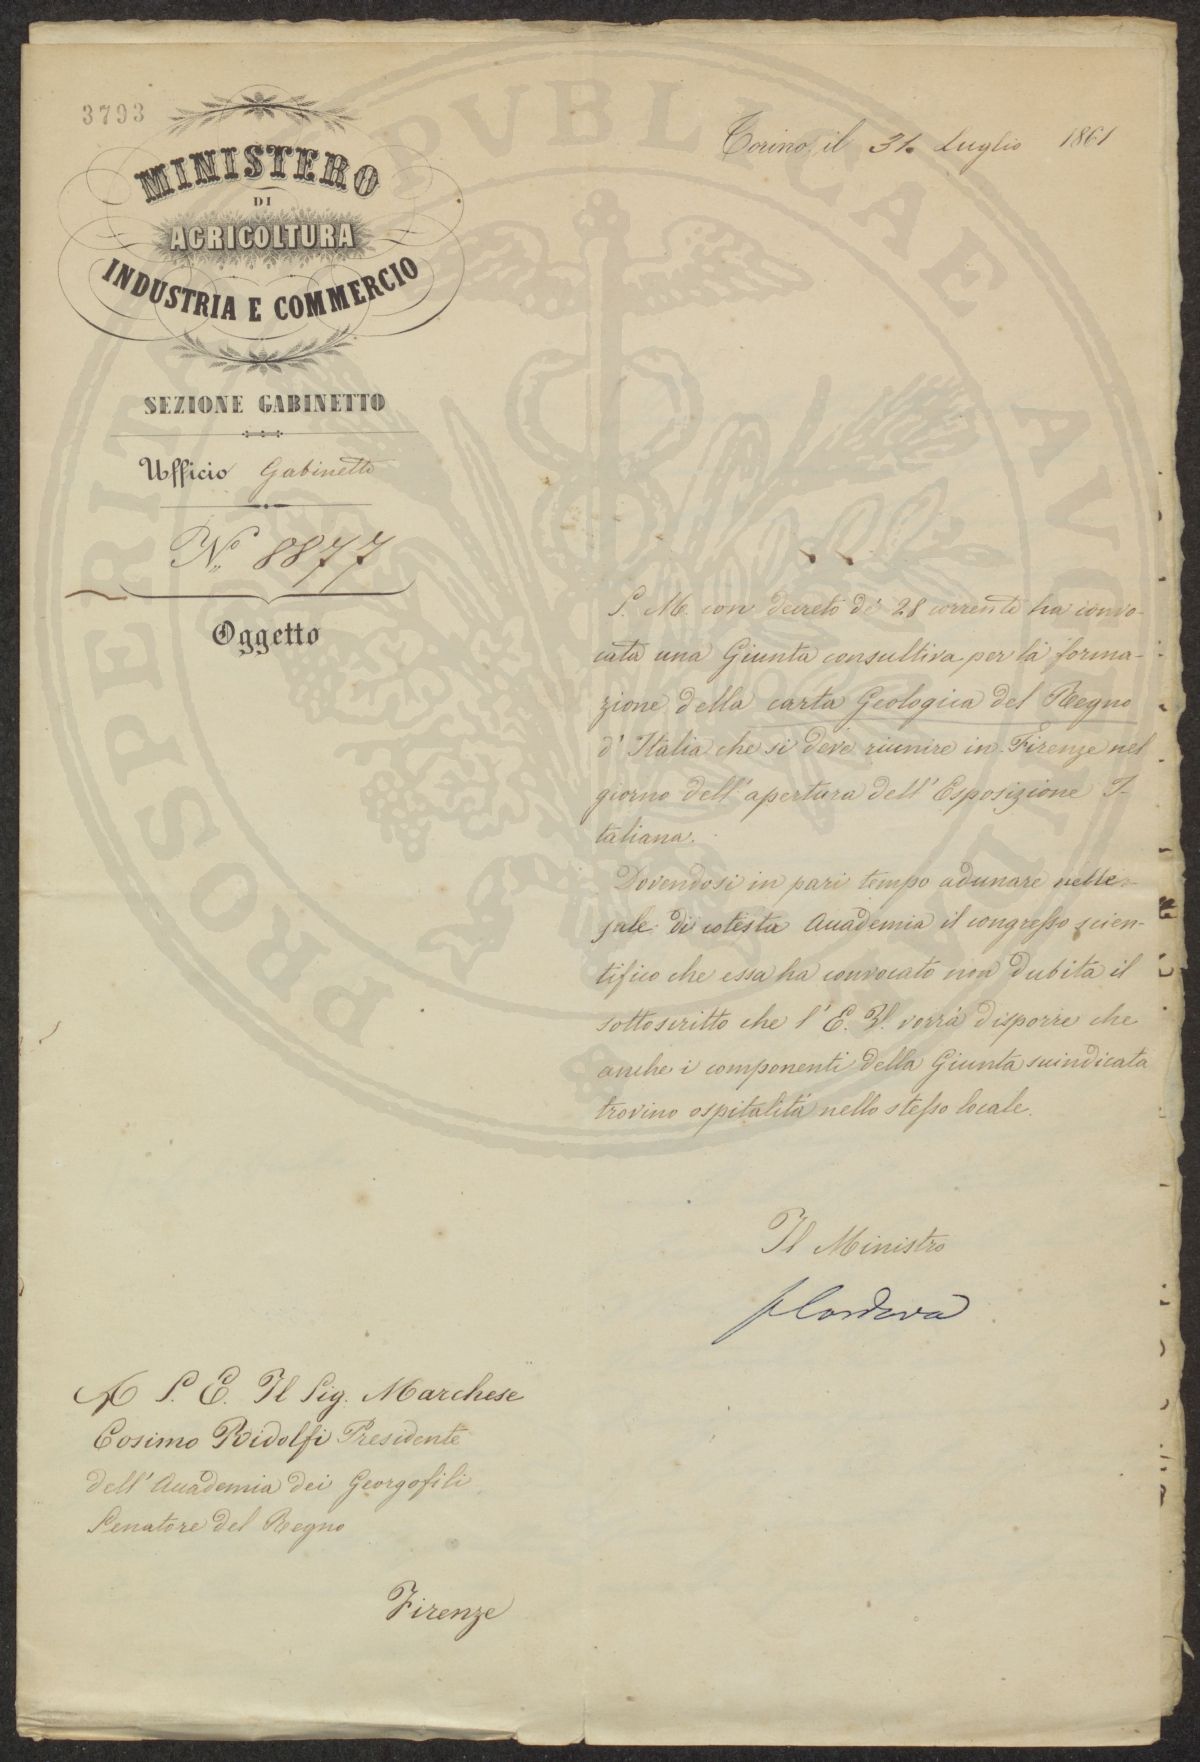 3793
MINISTERO
DI
AGRICOLTURA
INDUSTRIA E COMMERCIO
SEZIONE GABINETTO
Ufficio Gabinetto
N.° 8877
Oggetto
Torino, il 31. Luglio 1861
S. M. con decreto di 28 corrente ha convo-
cata una Giunta consultiva per la forma-
zione della carta Geologica del Regno
d'Italia che si deve riunire in Firenze nel
giorno dell'apertura dell'Esposizione I-
taliana.
Dovendosi in pari tempo adunare nelle
sale di cotesta Accademia il congresso scien-
tifico che essa ha convocato non dubita il
sottoscritto che l'E. V. vorrà disporre che
anche i componenti della Giunta suindicata
trovino ospitalità nello stesso locale.
Il Ministro
Cordova
A S. E. Il Sig. Marchese
Cosimo Ridolfi Presidente
dell'Accademia dei Georgofili
Senatore del Regno
Firenze
PROSPERITATI PVBLICAE AVGENDAE